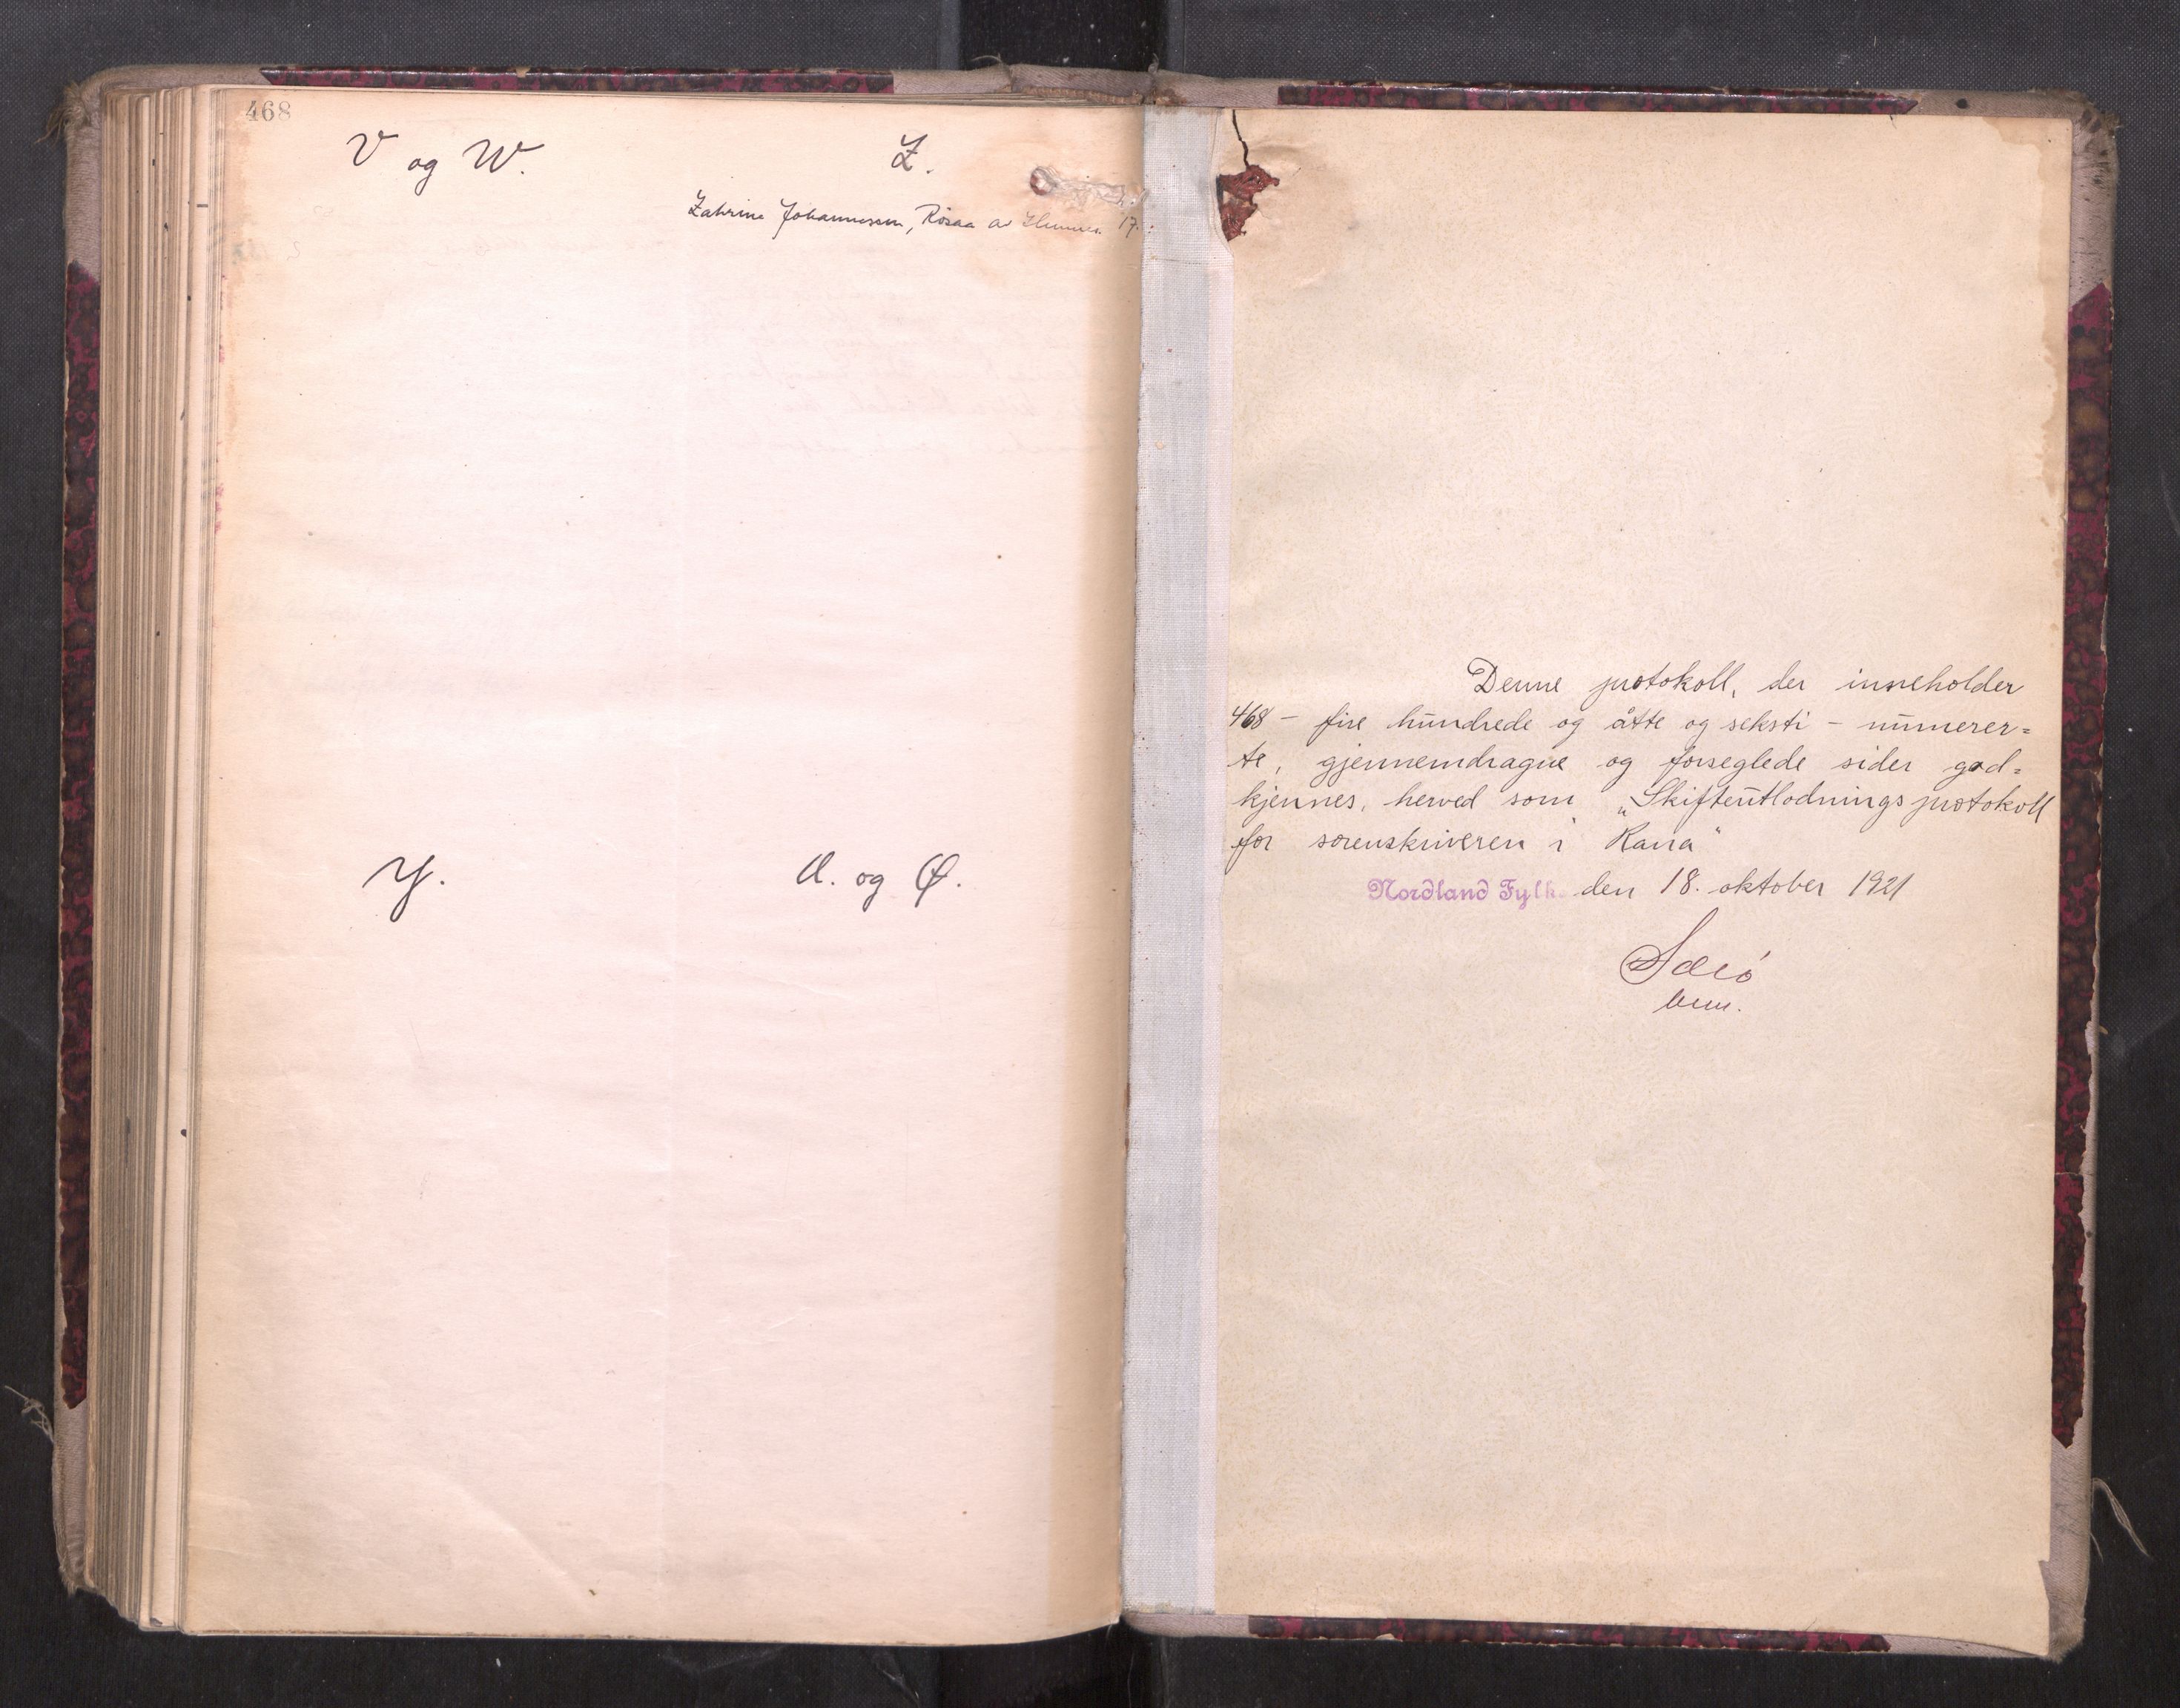 468
V og W.
Z.
Zahrine Johannessen, Røsaa av Hemnes 17.
Y.
Æ. og Ø.
Denne protokoll, der inneholder
468 - fire hundrede og åtte og seksti - numerer=
te, gjennemdragne og forseglede sider god=
kjennes herved som „Skifteutlodningsprotokoll
for sorenskriveren i Rana"
Nordland Fylke den 18. oktober 1921